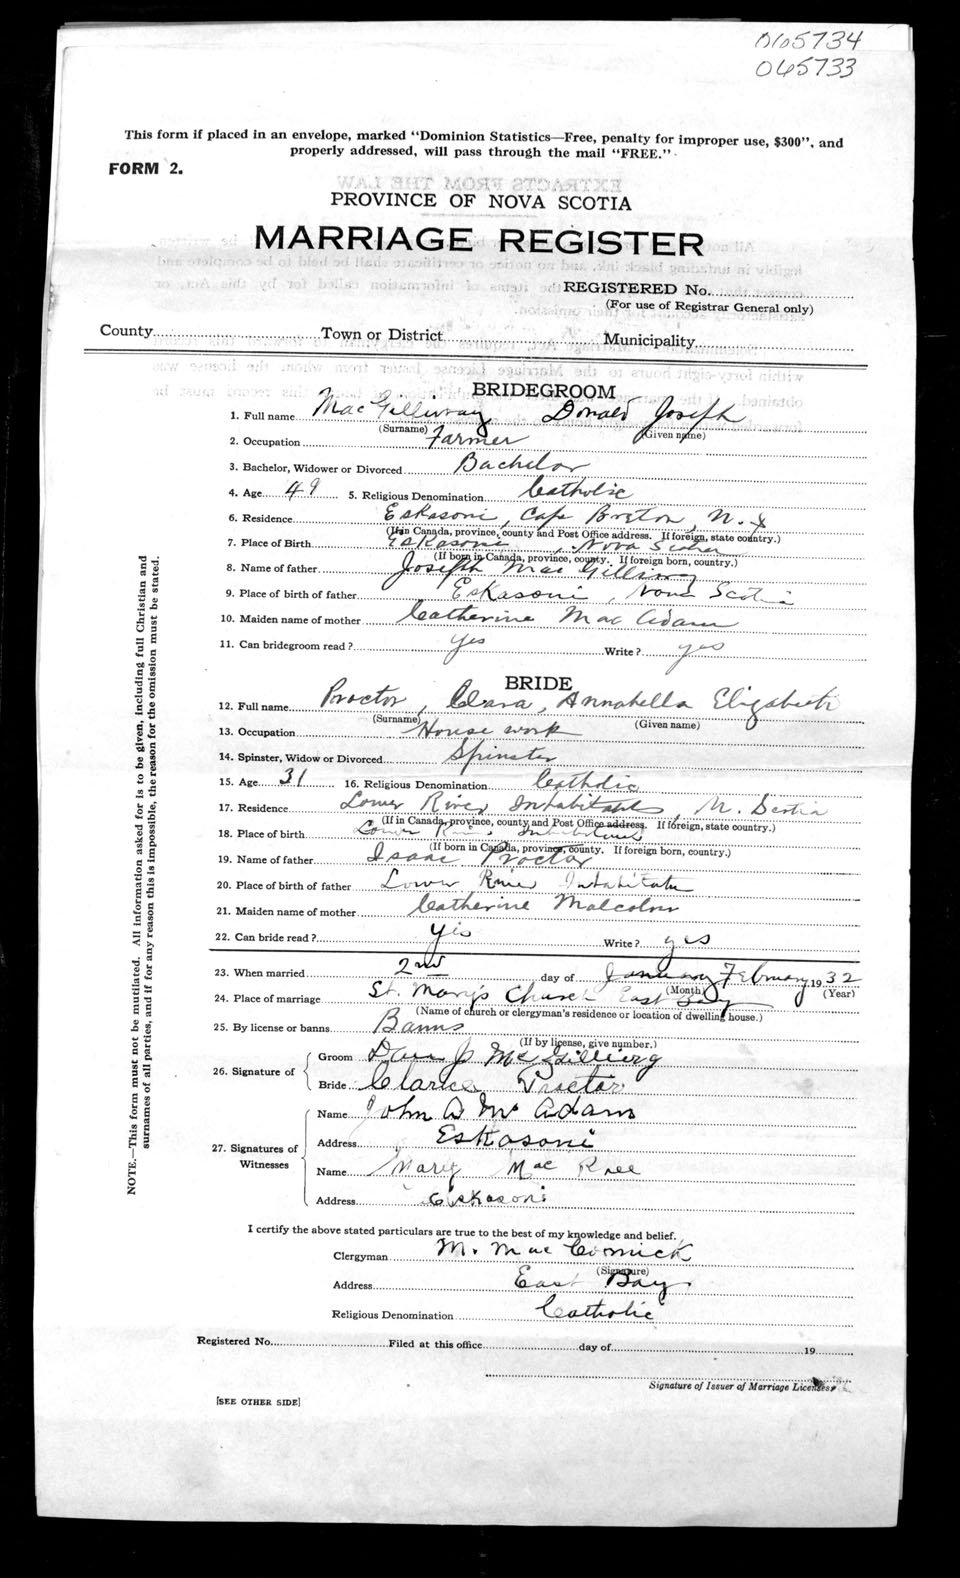 065734
065733
This form if placed in an envelope, marked "Dominion Statistics—Free, penalty for improper use, $300", and
properly addressed, will pass through the mail "FREE."
FORM 2.
EXTRACTS FROM THE LAW
PROVINCE OF NOVA SCOTIA
MARRIAGE REGISTER
REGISTERED No.
(For use of Registrar General only)
County Town or District Municipality
BRIDEGROOM
1. Full name MacGillivray Donald Joseph
(Surname) (Given name)
2. Occupation Farmer
3. Bachelor, Widower or Divorced Bachelor
4. Age 49 5. Religious Denomination Catholic
6. Residence Eskasoni, Cape Breton, N.S
(If in Canada, province, county and Post Office address. If foreign, state country.)
7. Place of Birth Eskasoni, Nova Scotia
(If born in Canada, province, county. If foreign born, country.)
8. Name of father Joseph MacGillivray
9. Place of birth of father Eskasoni, Nova Scotia
10. Maiden name of mother Catherine Mac Adam
11. Can bridegroom read? yes Write? yes
BRIDE
12. Full name Proctor, Clara, Annabella Elizabeth
(Surname) (Given name)
13. Occupation House work
14. Spinster, Widow or Divorced Spinster
15. Age 31 16. Religious Denomination Catholic
17. Residence Lower River Inhabitants, N. Scotia
(If in Canada, province, county and Post Office address. If foreign, state country.)
18. Place of birth Lower River Inhabitants
(If born in Canada, province, county. If foreign born, country.)
19. Name of father Isaac Proctor
20. Place of birth of father Lower River Inhabitants
21. Maiden name of mother Catherine Malcolm
22. Can bride read? Yes Write? yes
23. When married 2nd day of January February 1932
(Month) (Year)
24. Place of marriage St. Mary's Church East Bay
(Name of church or clergyman's residence or location of dwelling house.)
25. By license or banns Banns
(If by license, give number.)
26. Signature of Groom Dan J McGillivray
Bride Clarice Proctor
27. Signatures of Witnesses
Name John A Mc Adam
Address Eskasoni
Name Mary Mac Rae
Address Eskasoni
I certify the above stated particulars are true to the best of my knowledge and belief.
Clergyman M. MacCormick
(Signature)
Address East Bay
Religious Denomination Catholic
Registered No. Filed at this office day of 19
Signature of Issuer of Marriage Licenses
[SEE OTHER SIDE]
NOTE.—This form must not be mutilated. All information asked for is to be given, including full Christian and
surnames of all parties, and if for any reason this is impossible, the reason for the omission must be stated.